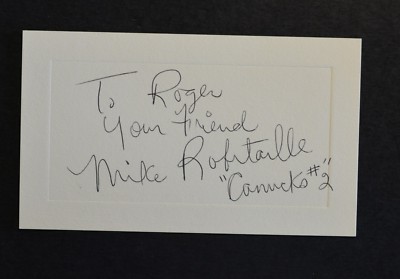 To Roger
Your Friend
Mike Robitaille
"Canucks #2"